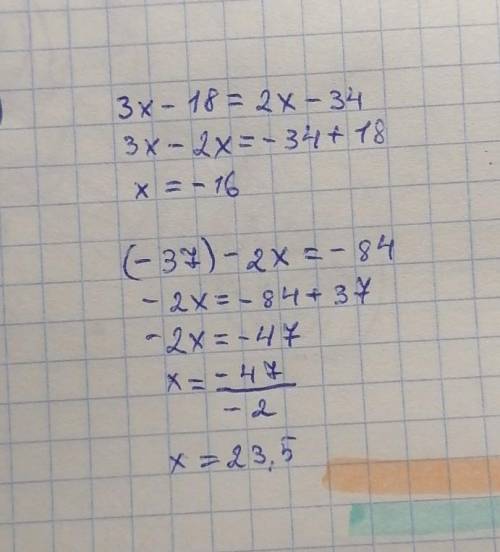 3x - 18 = 2x - 34
3x - 2x = - 34 + 18
x = - 16
(- 37) - 2x = - 84
- 2x = - 84 + 37
- 2x = - 47
x = - 47 / - 2
x = 23,5